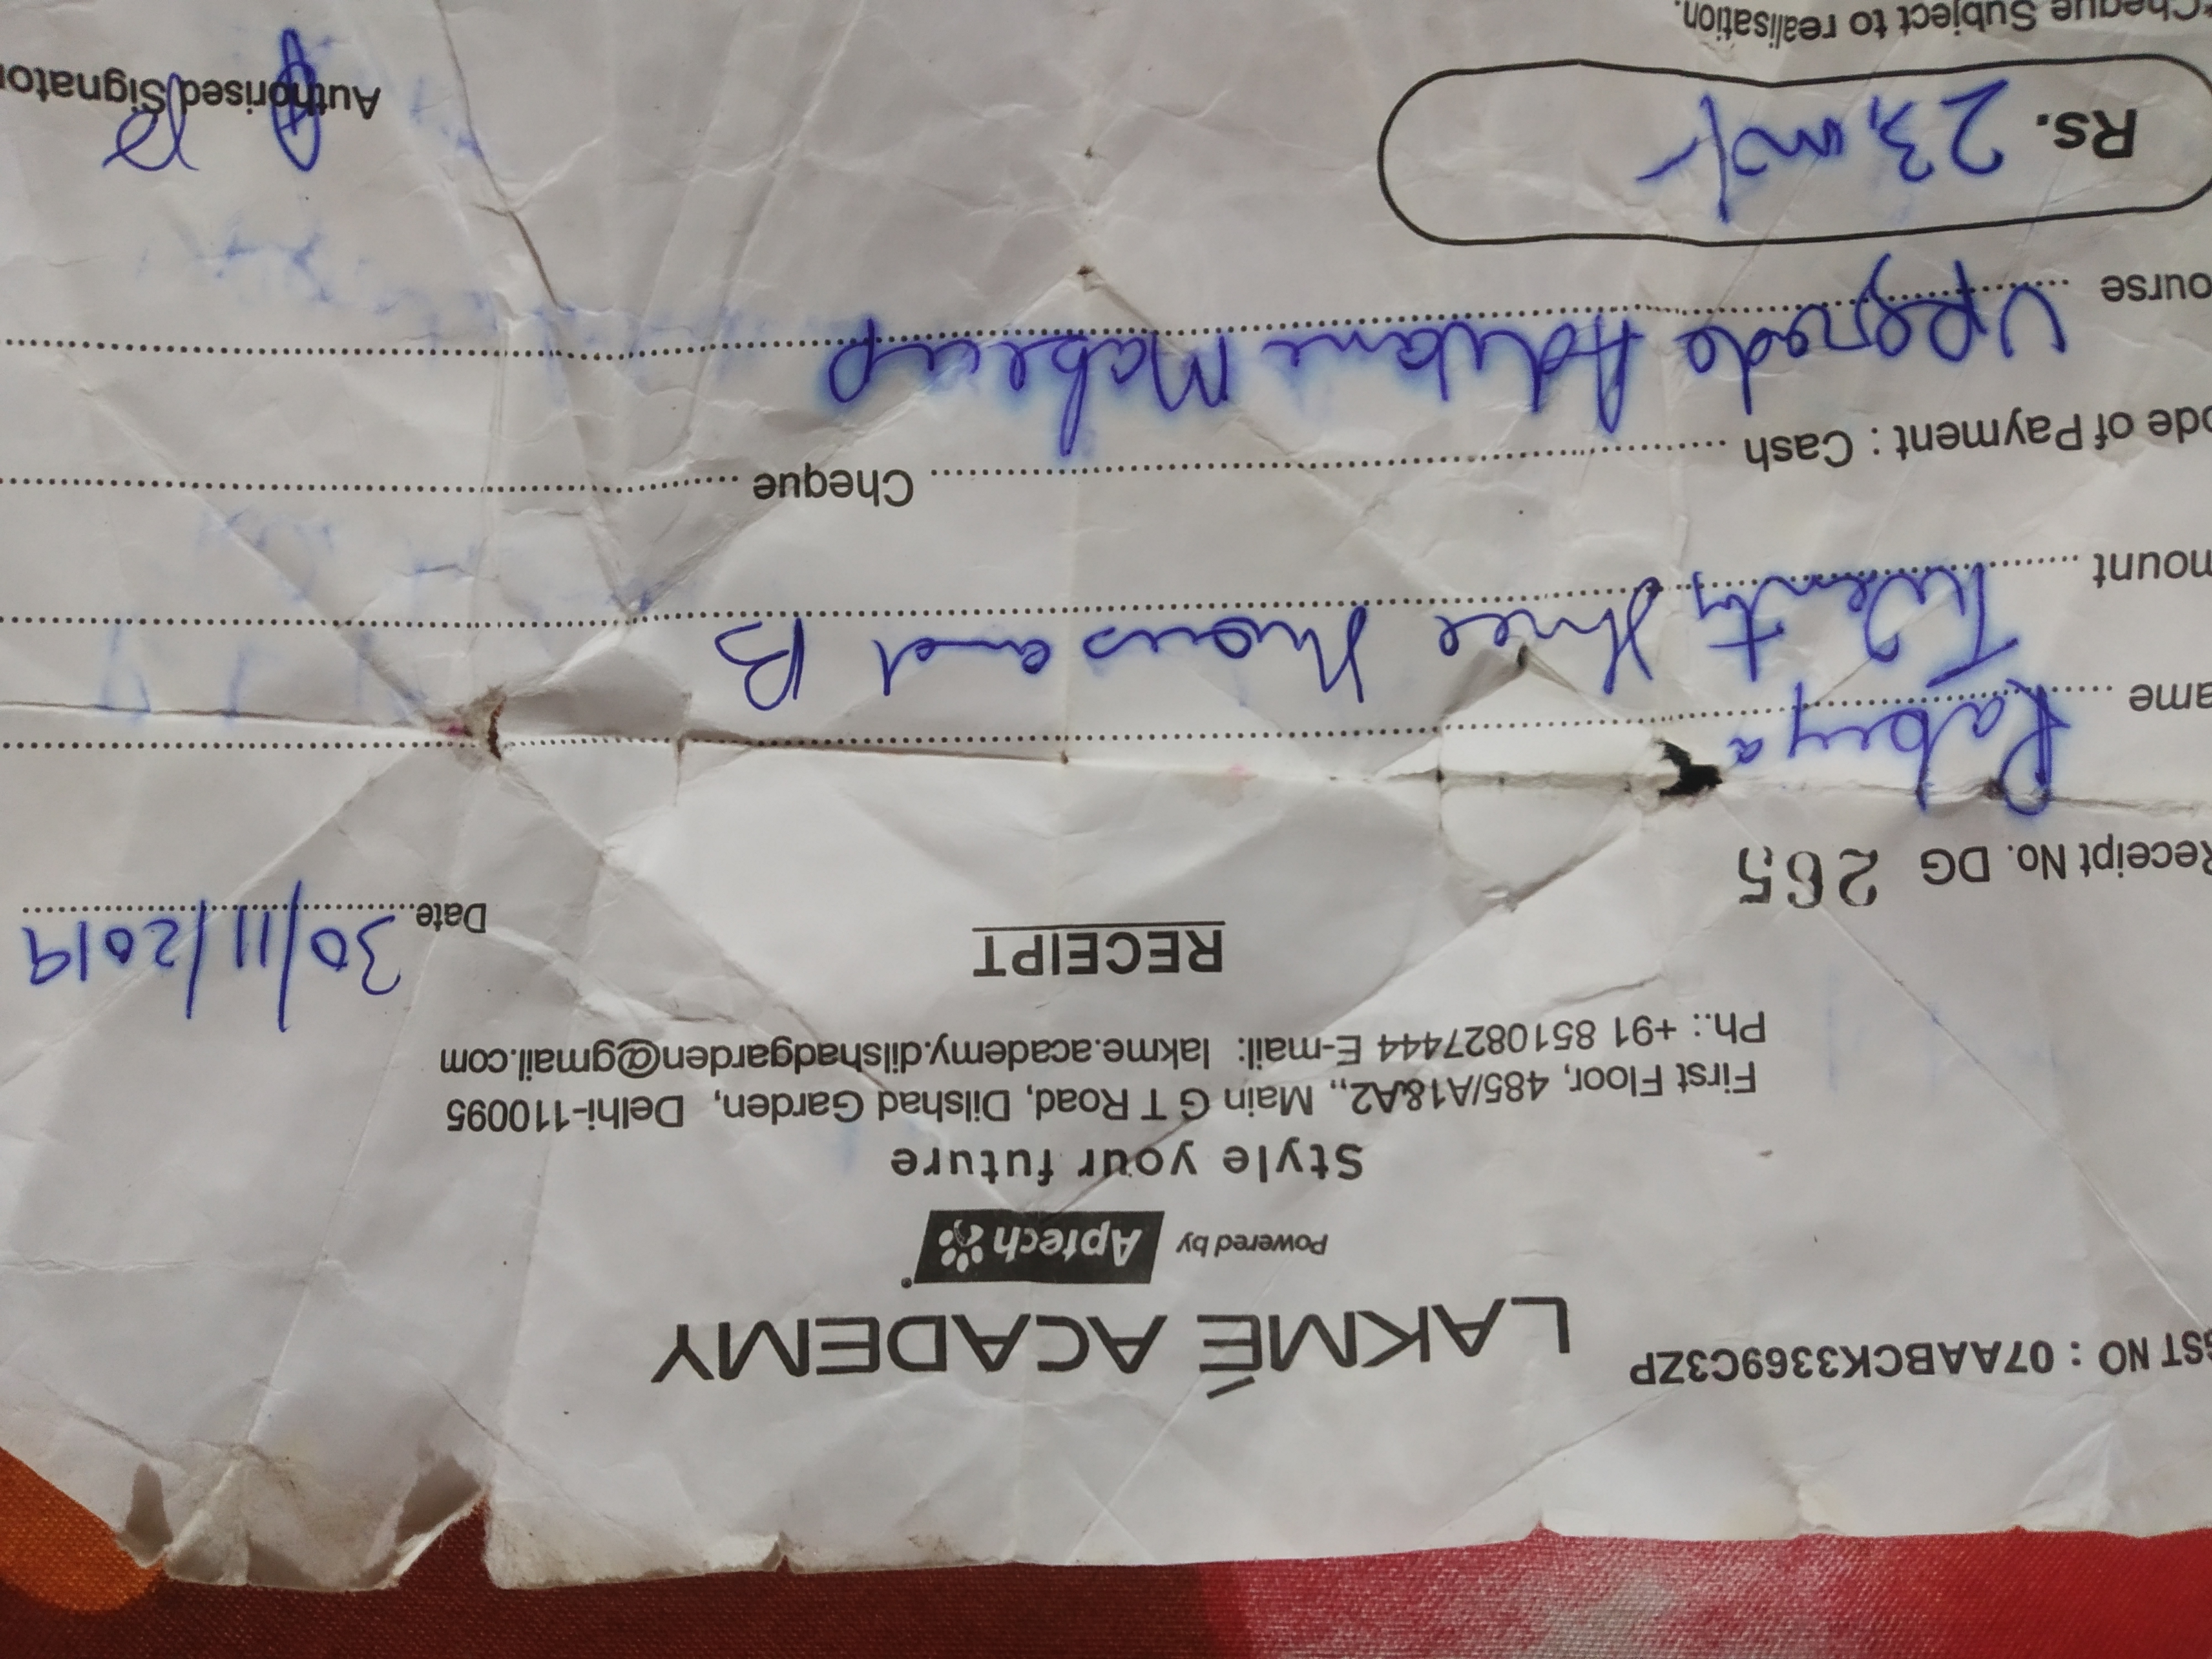 GST NO : 07AABCK3369C3ZP
LAKMÉ ACADEMY
Powered by Aptech
Style your future
First Floor, 485/A1&A2,, Main G T Road, Dilshad Garden, Delhi-110095
Ph.: +91 8510827444 E-mail: lakme.academy.dilshadgarden@gmail.com
RECEIPT
Receipt No. DG 265 Date 30/11/2019
ame Rabeya
mount Twenty three thousand B
ode of Payment : Cash Cheque
ourse Upgrade Advance Makeup
Rs. 23,000/-
Cheque Subject to realisation.
Authorised Signator